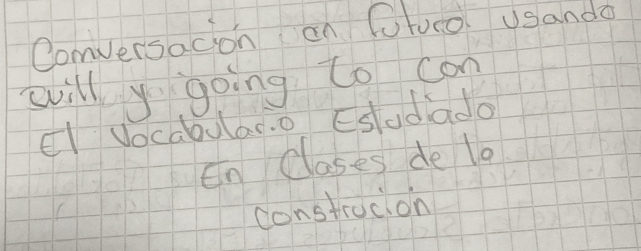 Comversación en futuro usando
will y going to con
El Vocabulario Estudiado
En Clases de lo
construcion